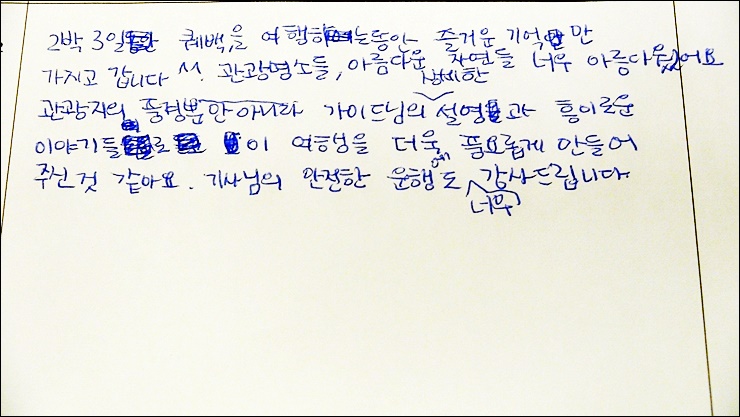 2박 3일 퀘백을 여행하는동안 즐거운 기억만
가지고 갑니다 ^^. 관광명소들, 아름다운 자연들 너무 아름다웠어요
상세한
관광지의 풍경뿐만 아니라 가이드님의 설명과 흥미로운
이야기들로 이 여행을 더욱 풍요롭게 만들어
주신 것 같아요. 기사님의 안전한 운행도 감사드립니다.
너무